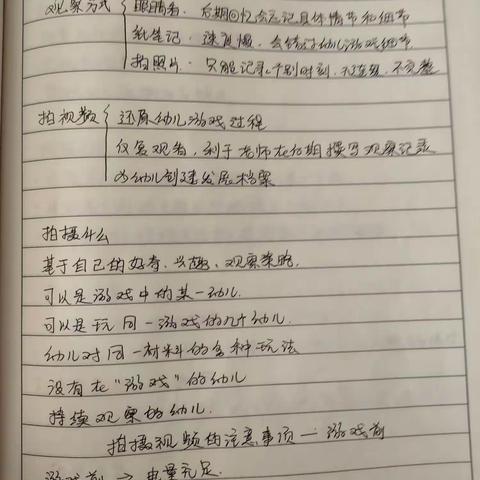 观察方式 { 眼睛看: 后期回忆会忘记具体情节和细节
纸笔记: 速度慢, 会错过幼儿游戏细节
拍照片: 只能记录个别时刻, 不连续, 不完整
拍视频 { 还原幼儿游戏过程
反复观看, 利于老师在后期撰写观察记录
为幼儿创建发展档案
拍摄什么
基于自己的好奇、兴趣、观察策略,
可以是游戏中的某一幼儿.
可以是玩同一游戏的几个幼儿.
幼儿对同一材料的各种玩法
没有在“游戏”的幼儿
持续观察的幼儿.
拍摄视频的注意事项 — 游戏前
游戏前 → 电量充足.